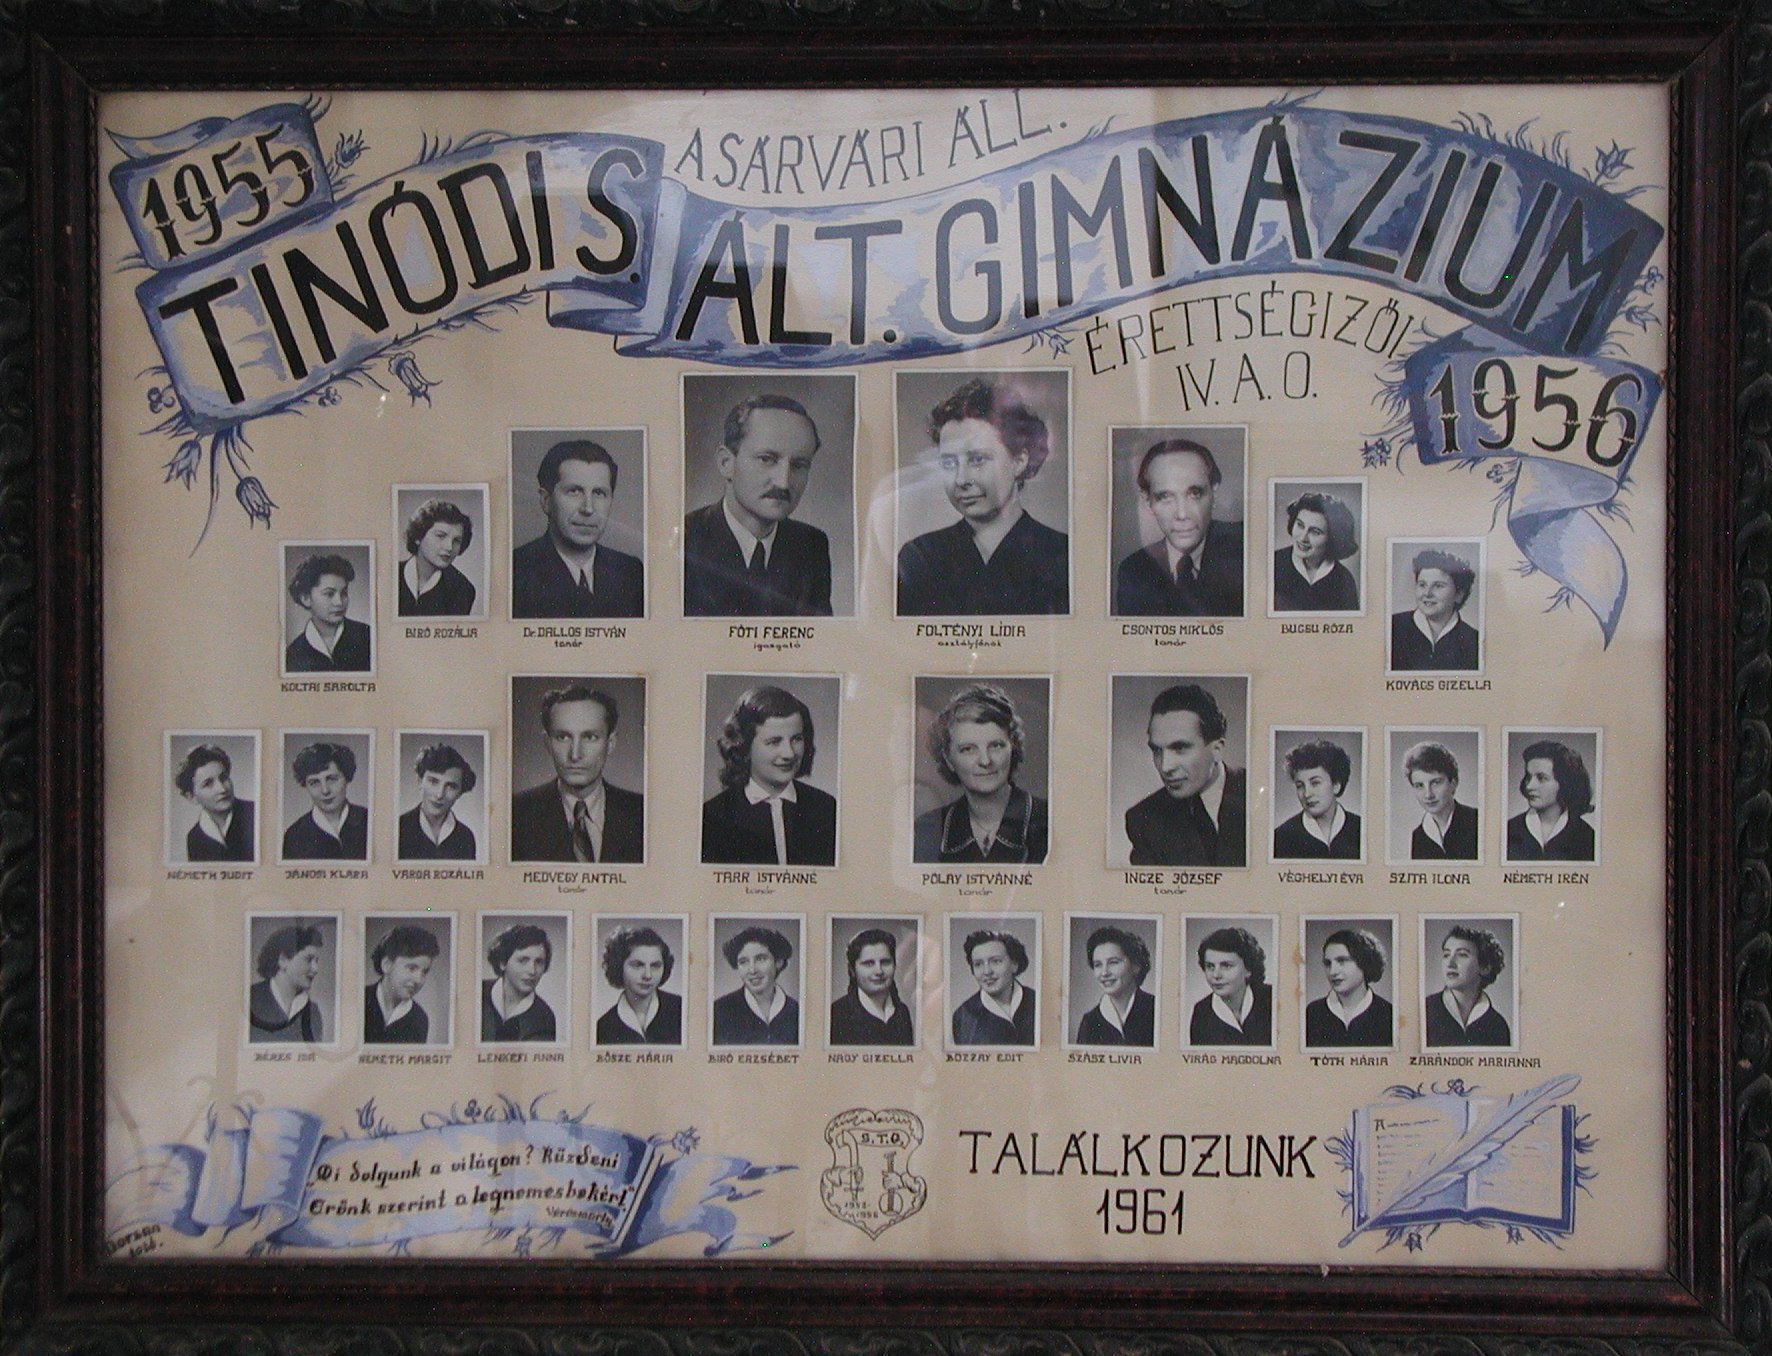 1955
A SÁRVÁRI ÁLL.
TINÓDI S. ÁLT. GIMNÁZIUM
ÉRETTSÉGIZŐI
IV. A. O.
1956
KOLTAI SAROLTA
BIRÓ ROZÁLIA
Dr. DALLOS ISTVÁN
tanár
FÓTI FERENC
igazgató
FOLTÉNYI LÍDIA
osztályfőnök
CSONTOS MIKLÓS
tanár
BUGSU RÓZA
KOVÁCS GIZELLA
NÉMETH JUDIT
JÁNOSI KLÁRA
VARGA ROZÁLIA
MEDVEGY ANTAL
tanár
TARR ISTVÁNNÉ
tanár
PÓLAY ISTVÁNNÉ
tanár
INCZE JÓZSEF
tanár
VÉGHELYI ÉVA
SZITA ILONA
NÉMETH IRÉN
BÉRES IDA
NÉMETH MARGIT
LENKEFI ANNA
BŐSZE MÁRIA
BIRÓ ERZSÉBET
NAGY GIZELLA
BOZZAY EDIT
SZÁSZ LIVIA
VIRÁG MAGDOLNA
TÓTH MÁRIA
ZARÁNDOK MARIANNA
„Mi dolgunk a világon? Küzdeni
Erőnk szerint a legnemesbekért."
Vörösmarty
S.T.G.
1952-
1956
TALÁLKOZUNK
1961